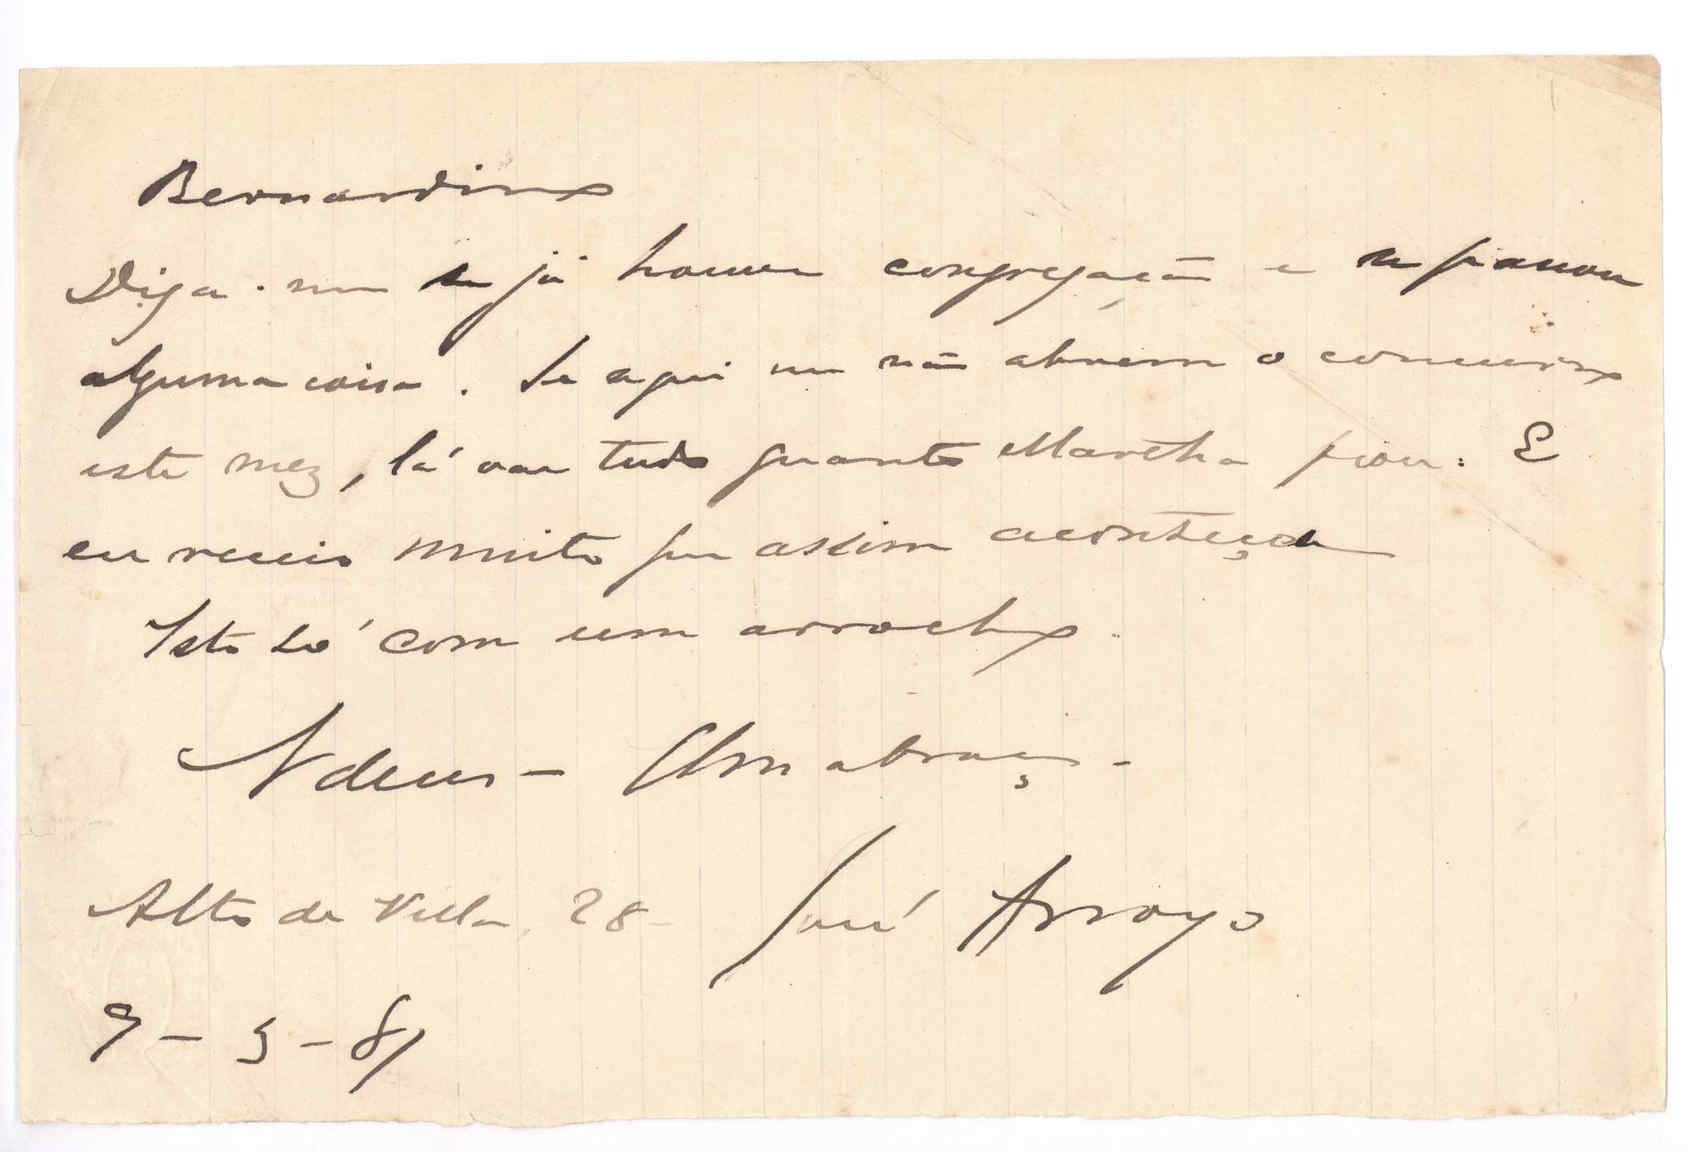 Bernardino
Diga-me se já houve congregação e se passou
alguma coisa. Se aqui me não abrem o concurso
este mez, lá vae tudo quanto Martha fiou. E
eu receio muito que assim aconteça
Isto só com um arrocho.
Adeus – Um abraço –
Alto da Villa, 28 – José Arroyo
9 – 5 – 81